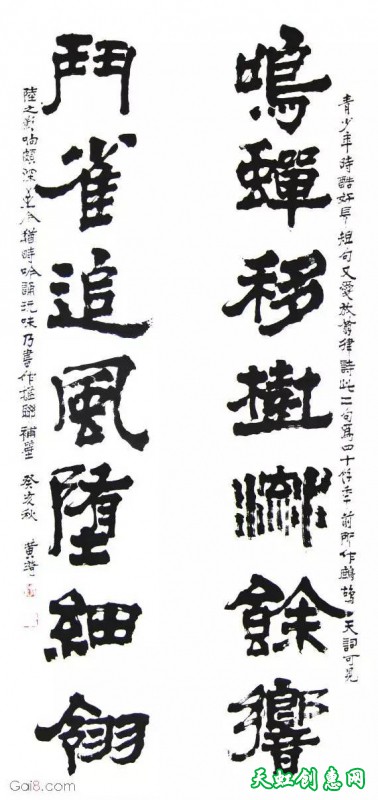 鳴蟬移樹流餘響
青少年時酷好長短句又愛放翁律詩此二句爲四十餘年前所作鷓鴣天詞可見
鬥雀追風墮細翎
陸之影响頗深至今猶時吟誦玩味乃書作楹聯補壁 癸亥秋 黃
Gai8.com
天虹创惠网